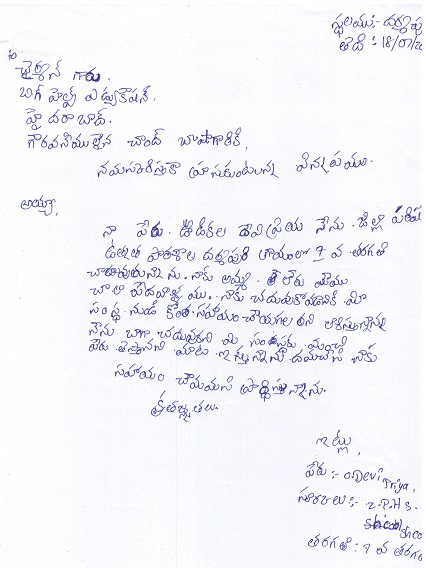 స్థలము:- దర్శిపు
తేది : 18/07/20
to
చైర్మన్ గారు.
బిగ్ హెల్ప్ ఎడ్యుకేషన్.
హైదరాబాద్.
గౌరవనీయులైన చాంద్ బాషాగారికి,
నమస్కరిస్తూ వ్రాసుకుంటున్న విన్నపము.
అయ్యా,
నా పేరు. ఊడికల దేవిప్రియ నేను. జిల్లా పరిష
ఉన్నత పాఠశాల దర్శిపురి గ్రామంలో 9 వ తరగతి
చదువుతున్నాను. నాకు అమ్మ. లేరు మేము
చాలా పేదవాళ్ళము. నాకు చదువుకోవడానికి మీ
సంస్థ నుండి కొంత సహాయం చేయగలరని ఆశిస్తున్నాను
నేను బాగా చదువుకుని మీ సంస్థకు మంచి
పేరు తెస్తానని మాట ఇస్తున్నాను దయచేసి నాకు
సహాయం చేయమని ప్రార్థిస్తున్నాను.
కృతజ్ఞతలు.
ఇట్లు,
పేరు:- O.Devi Priya,
స్కూలు:- Z.P.H.S.
School
తరగతి : 9 వ తరగ